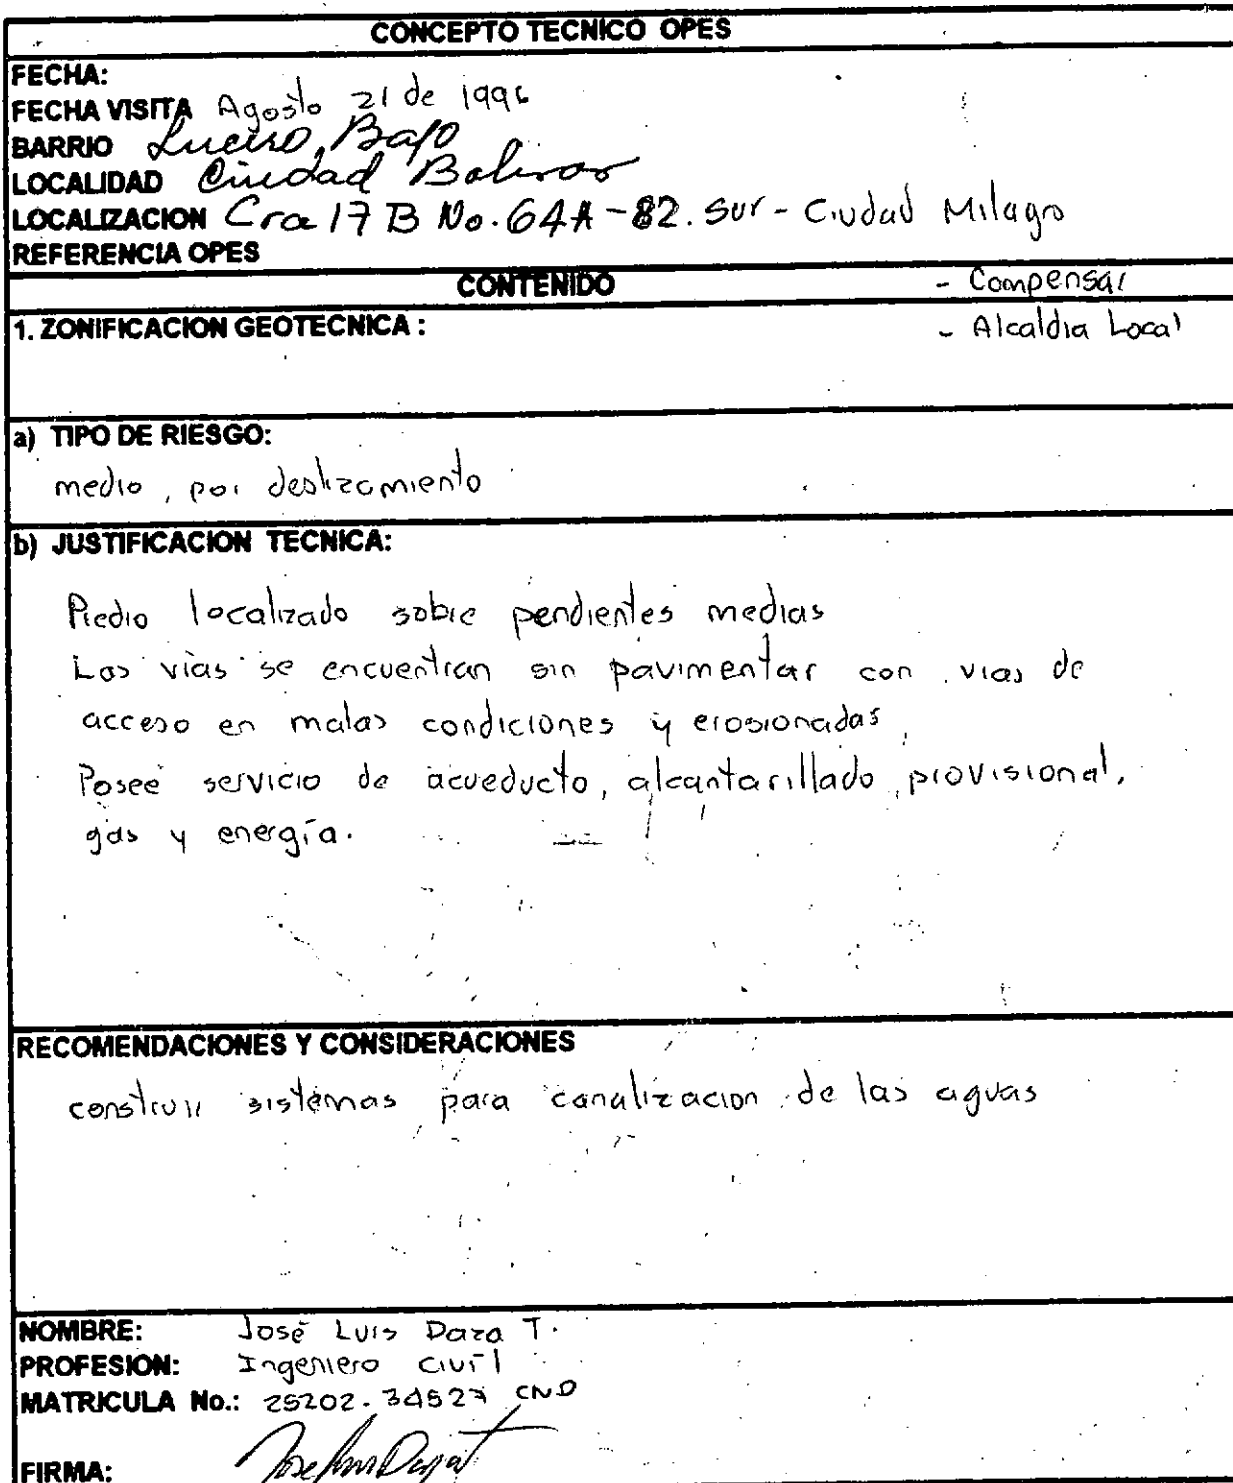 CONCEPTO TECNICO OPES
FECHA:
FECHA VISITA Agosto 21 de 1996
BARRIO Lucero Bajo
LOCALIDAD Ciudad Bolivar
LOCALIZACION Cra 17 B No. 64A - 82. Sur - Ciudad Milagro
REFERENCIA OPES
CONTENIDO - Compensar
1. ZONIFICACION GEOTECNICA : - Alcaldia Local
a) TIPO DE RIESGO:
medio, por deslizamiento
b) JUSTIFICACION TECNICA:
Predio localizado sobre pendientes medias
Las vías se encuentran sin pavimentar con vias de
acceso en malas condiciones y erosionadas,
Posee servicio de acueducto, alcantarillado provisional,
gas y energía.
RECOMENDACIONES Y CONSIDERACIONES
construir sistemas para canalizacion de las aguas
NOMBRE: José Luis Daza T.
PROFESION: Ingeniero Civil
MATRICULA No.: 25202.34527 CND
FIRMA: Jose Luis Daza T